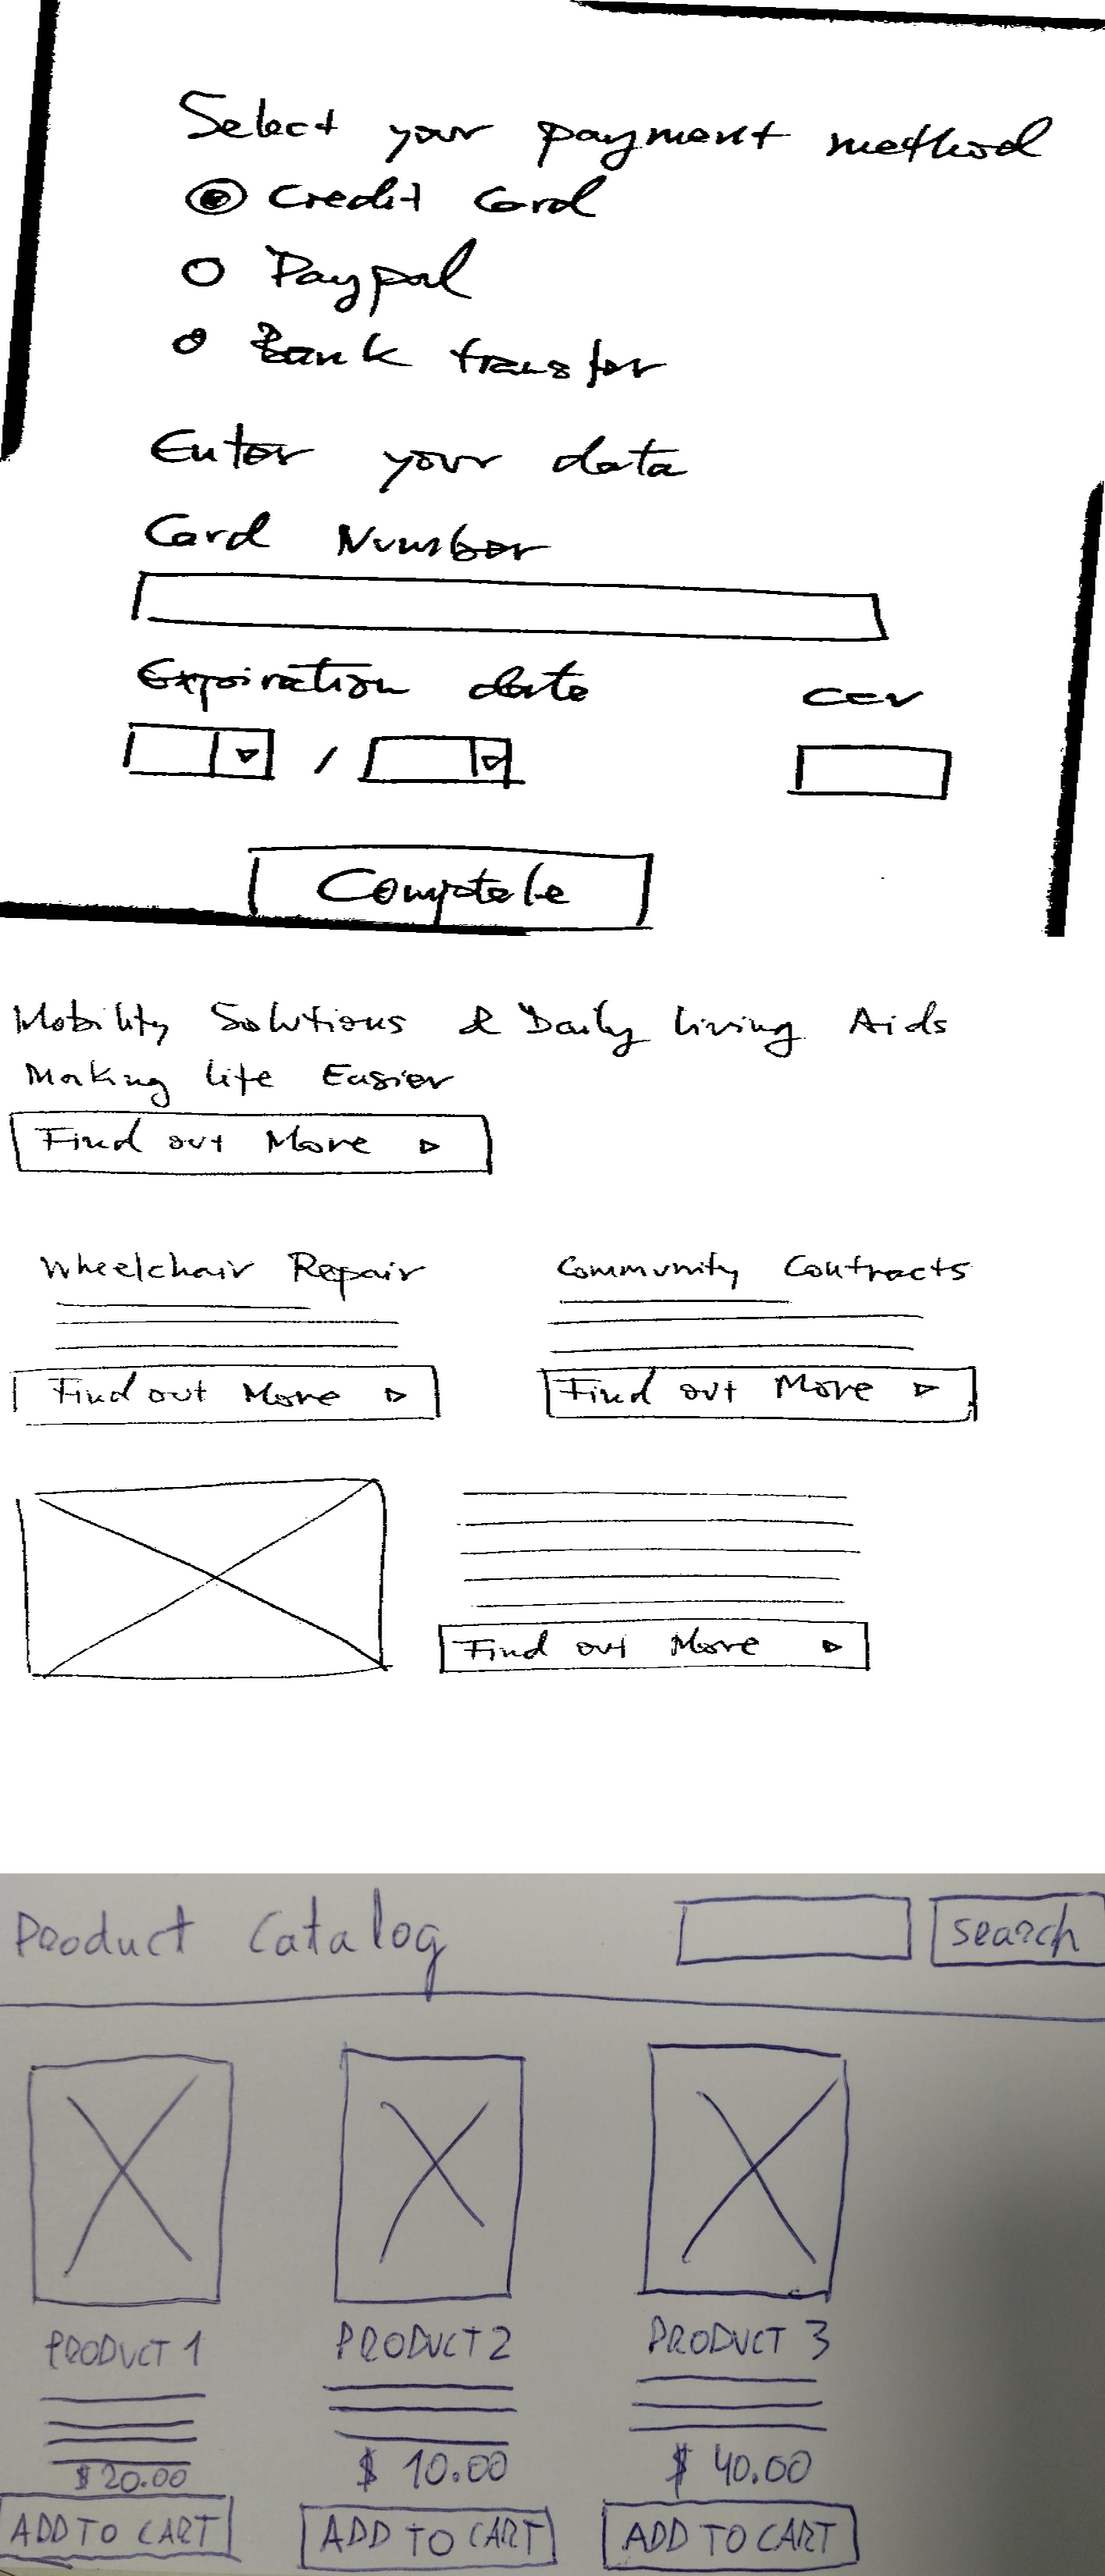 Select your payment method
Credit Card
Paypal
Bank transfer
Enter your data
Card Number
Expiration date ccv
/
Complete
Mobility Solutions & Daily Living Aids
Making life Easier
Find out More
Wheelchair Repair Community Contracts
Find out More Find out More
Find out More
Product Catalog search
PRODUCT 1 PRODUCT 2 PRODUCT 3
$ 20.00 $ 10.00 $ 40.00
ADD TO CART ADD TO CART ADD TO CART